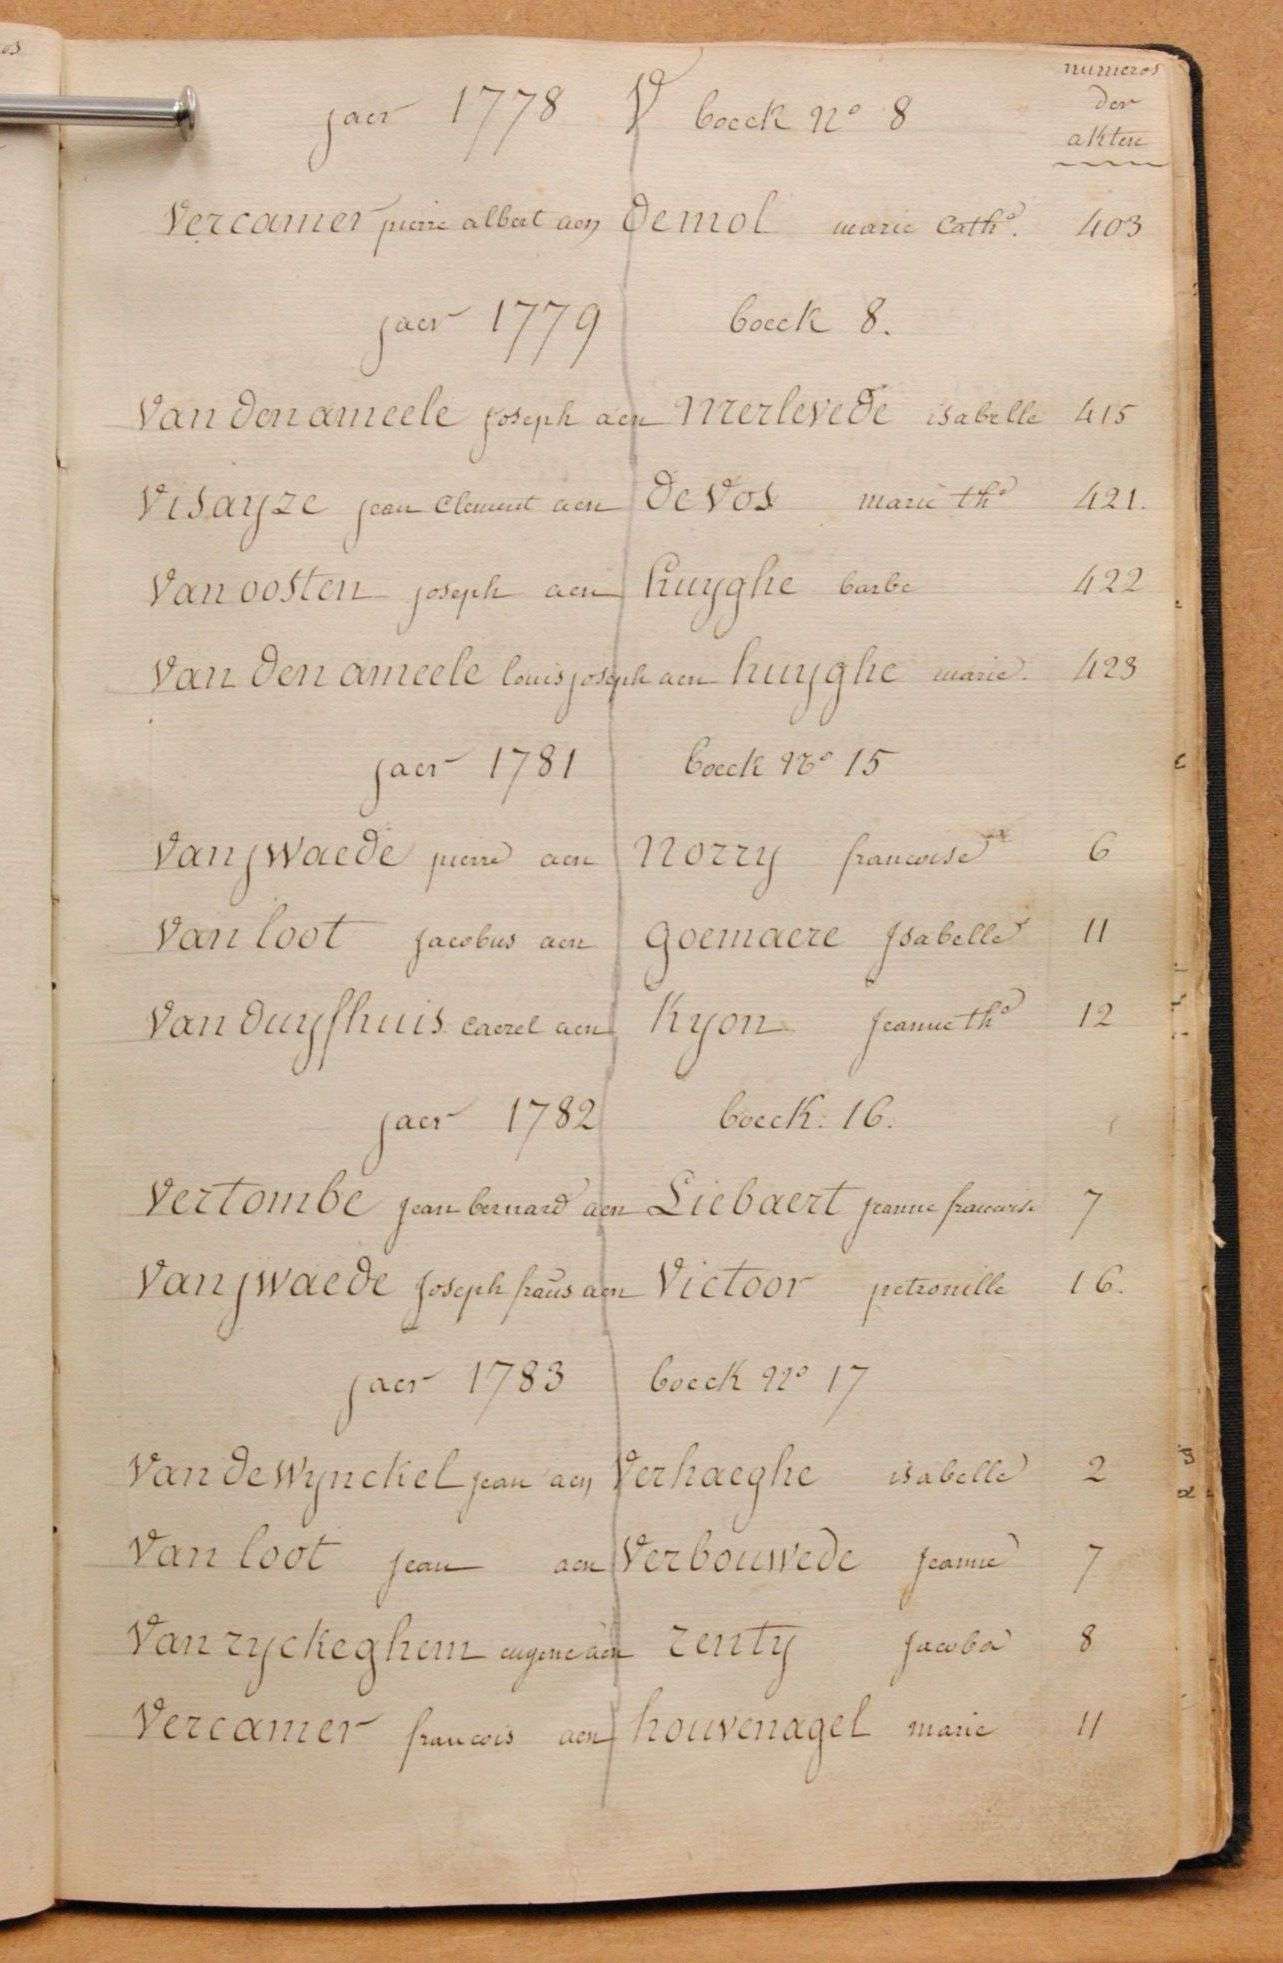 numeros
der
akten
jaer 1778 V boeck N° 8
Vercamer pierre albert aen Demol marie Cath^e. 403
jaer 1779 boeck 8.
Van den ameele joseph aen Merlevede isabelle 415
Visayze jean Clement aen De Vos marie th^e 421.
Van oosten joseph aen huyghe barbe 422
Van den ameele louis joseph aen huyghe marie. 423
jaer 1781 boeck N° 15
Van jwaede pierre aen Norry francoise 6
Van loot jacobus aen goemaere Jsabelle 11
Van duyfhuis caerel aen Kyon jeanne th^e 12
jaer 1782 boeck: 16.
Vertombe jean bernard aen Liebaert jeanne francoise 7
Van jwaede joseph fraus aen Victoor petronille 16.
jaer 1783 boeck N° 17
Van de Wynckel jean aen Verhaeghe isabelle 2
Van loot jean aen Verbouwede jeanne 7
Van ryckeghem eugene aen Zenty jacoba 8
Vercamer francois aen houvenagel marie 11